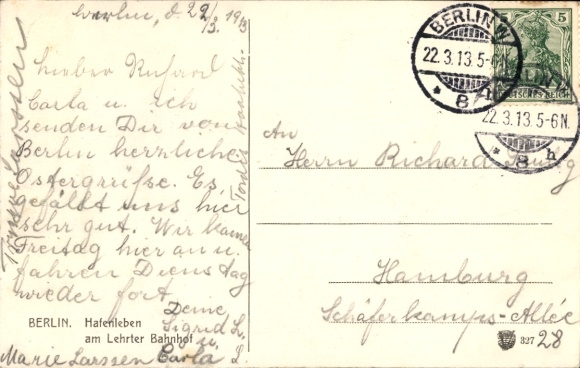 Berlin, d. 22/3. 1913
Lieber Richard
Carla u. ich
senden Dir von
Berlin herzliche
Ostergrüße. Es
gefällt uns hier
sehr gut. Wir kamen
Freitag hier an u.
fahren Dienstag
wieder fort
Deine
Sigrid L.
u.
Carla L.
Marie Larssen
Larssen
BERLIN. Hafenleben
am Lehrter Bahnhof
BERLIN
22.3.13.5-6N.
* 8 h
5 5
DEUTSCHES REICH
22.3.13.5-6N.
* 8 h
An
Herrn Richard
Hamburg
Schäferkamps-Allée
28
327